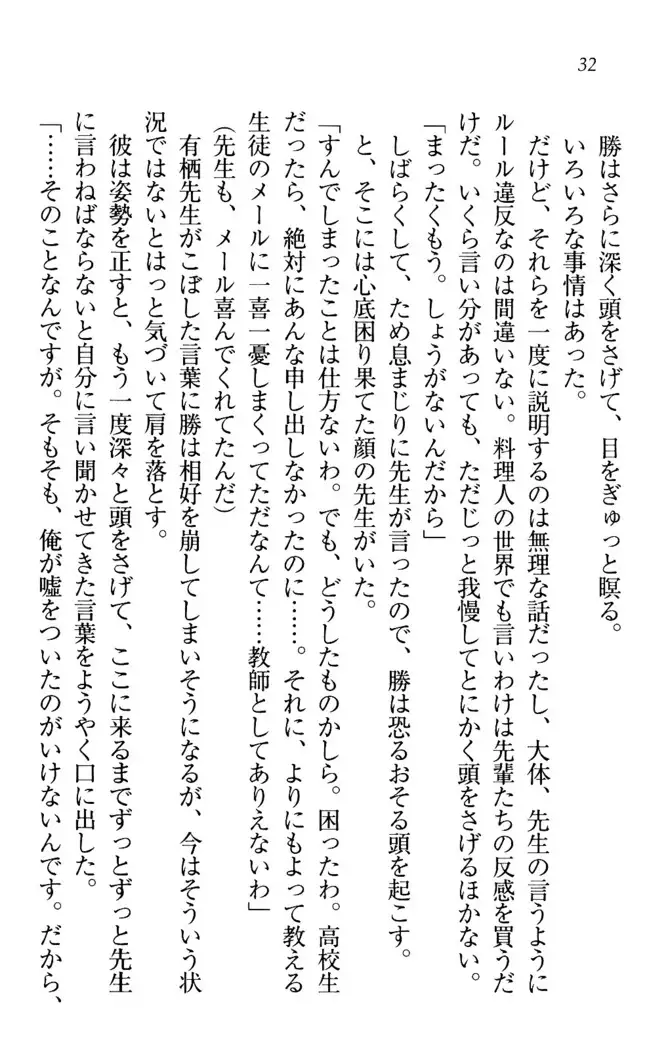 32
勝はさらに深く頭をさげて、目をぎゅっと瞑る。
いろいろな事情はあった。
だけど、それらを一度に説明するのは無理な話だったし、大体、先生の言うように
ルール違反なのは間違いない。料理人の世界でも言いわけは先輩たちの反感を買うだ
けだ。いくら言い分があっても、ただじっと我慢してとにかく頭をさげるほかない。
「まったくもう。しょうがないんだから」
しばらくして、ため息まじりに先生が言ったので、勝は恐るおそる頭を起こす。
と、そこには心底困り果てた顔の先生がいた。
「すんでしまったことは仕方ないわ。でも、どうしたものかしら。困ったわ。高校生
だったら、絶対にあんな申し出しなかったのに……。それに、よりにもよって教える
生徒のメールに一喜一憂しまくってただなんて……教師としてありえないわ」
(先生も、メール喜んでくれてたんだ)
有栖先生がこぼした言葉に勝は相好を崩してしまいそうになるが、今はそういう状
況ではないとはっと気づいて肩を落とす。
彼は姿勢を正すと、もう一度深々と頭をさげて、ここに来るまでずっとずっと先生
に言わねばならないと自分に言い聞かせてきた言葉をようやく口に出した。
「……そのことなんですが。そもそも、俺が嘘をついたのがいけないんです。だから、